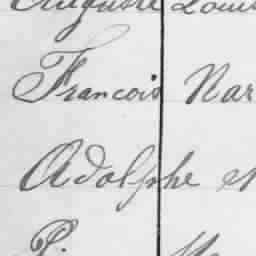 Auguste Louis
Francois Nar
Adolphe et
P.